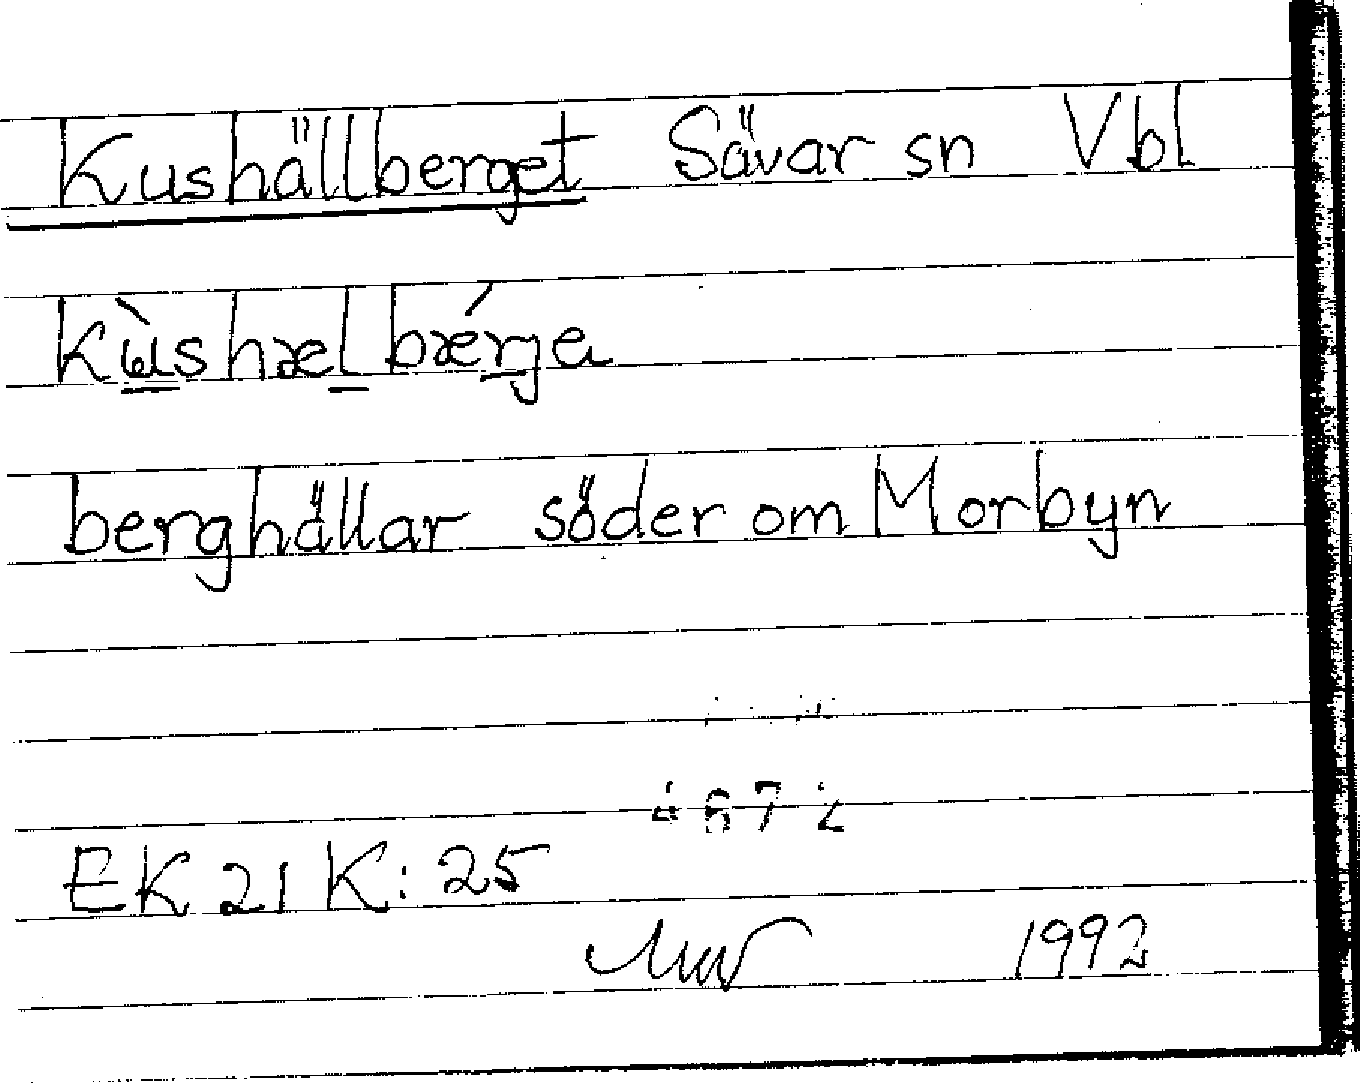 Kushällberget Sävar sn Vbl
kùshælbærga
berghällar söder om Morbyn
EK 21 K: 25
1992